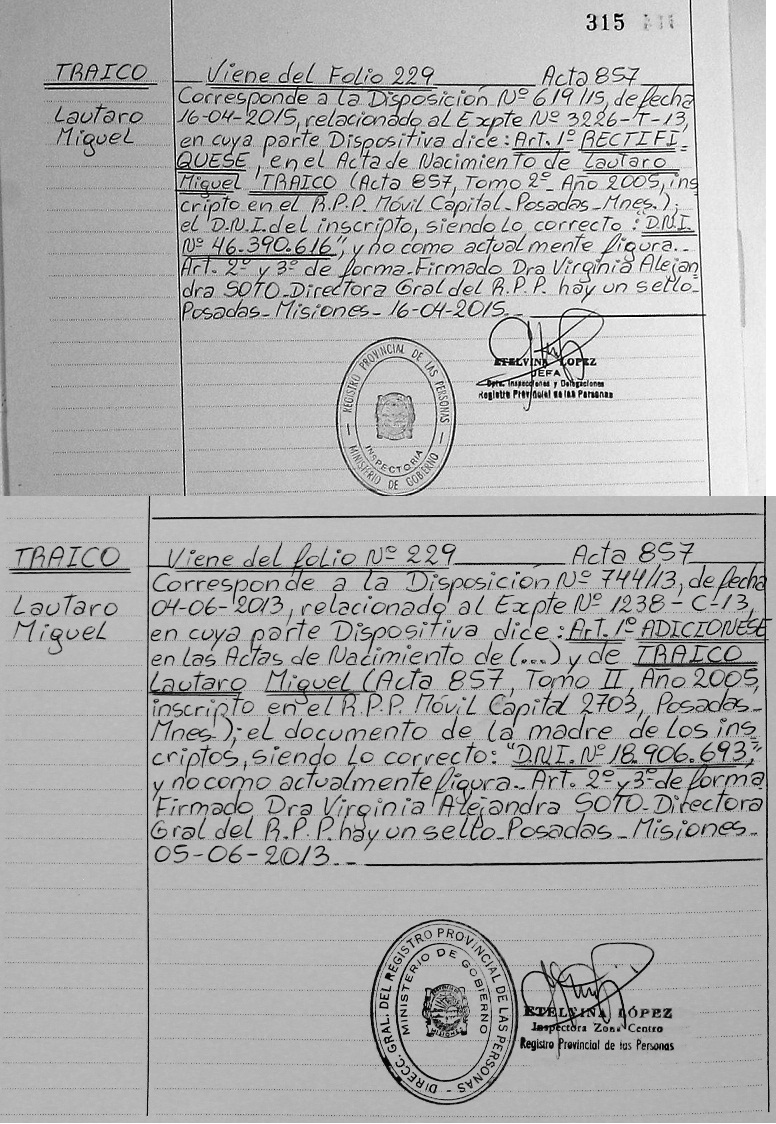 315
TRAICO
Lautaro
Miguel
Viene del Folio 229 Acta 857
Corresponde a la Disposición Nº 619/15, de fecha
16-04-2015, relacionado al Expte Nº 3226-T-13,
en cuya parte Dispositiva dice: Art. 1º RECTIFI-
QUESE, en el Acta de Nacimiento de Lautaro
Miguel TRAICO (Acta 857, Tomo 2º Año 2005, ins
cripto en el R.P.P. Móvil Capital-Posadas-Mnes.);
el D.N.I. del inscripto, siendo lo correcto: "D.N.I.
Nº 46.390.616", y no como actualmente figura.-
Art. 2º y 3º de forma-Firmado Dra Virginia Alejan
dra SOTO-Directora Gral del R.P.P. hay un sello-
Posadas-Misiones-16-04-2015.-
ETELVINA LOPEZ
JEFA
Dpto. Inspecciones y Delegaciones
Registro Provincial de las Personas
REGISTRO PROVINCIAL DE LAS PERSONAS
INSPECTORIA
MINISTERIO DE GOBIERNO
TRAICO
Lautaro
Miguel
Viene del folio Nº 229 Acta 857
Corresponde a la Disposición Nº 744/13, de fecha
04-06-2013, relacionado al Expte Nº 1238-C-13,
en cuya parte Dispositiva dice: Art. 1º ADICIONESE
en las Actas de Nacimiento de (...) y de TRAICO
Lautaro Miguel (Acta 857, Tomo II, Año 2005,
inscripto en el R.P.P. Móvil Capital 2703, Posadas-
Mnes.); el documento de la madre de los ins
criptos, siendo lo correcto: "D.N.I. Nº 18.906.693,"
y no como actualmente figura.- Art. 2º y 3º de forma
Firmado Dra Virginia Alejandra SOTO-Directora
Gral del R.P.P. hay un sello-Posadas-Misiones-
05-06-2013.-
DIRECC. GRAL. DEL REGISTRO PROVINCIAL DE LAS PERSONAS
MINISTERIO DE GOBIERNO
MISIONES
ETELVINA LÓPEZ
Inspectora Zona Centro
Registro Provincial de las Personas